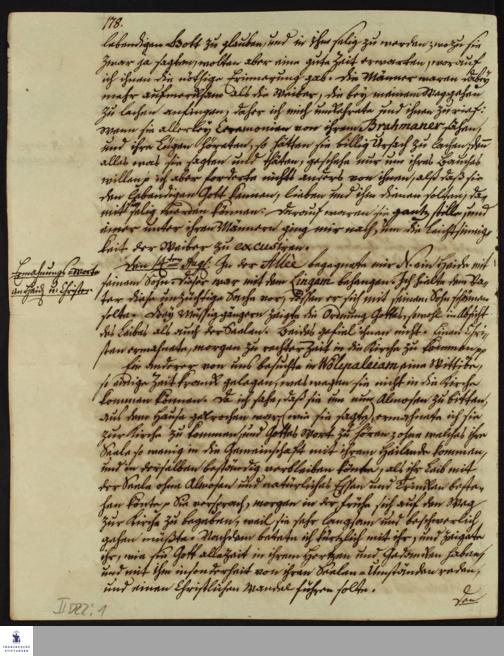 178.
lebendigen Gott zu glauben, und in ihm selig zu werden, wozu sie
zwar ja sagten, wolten aber eine gute Zeit erwarten, worauf
ich ihnen die nöthige Erinnerung gab. Die Männer waren dabey
mehr aufmercksam als die Weiber, die bey meinem Weggehen
zu lachen anfingen, daher ich mich umkehrete und ihnen zurief:
wenn sie allerley Ceremonien von ihren Brahmaner sähen,
und ihre Lügen höreten, so hätten sie billig Ursach zu lachen, denn
alles was sie sagten und thäten, geschehe nur um ihres Bauches
willen; ich aber forderte nichts anders von ihnen, als daß sie
den lebendigen Gott kennen, lieben und ihm dienen solten, da-
mit selig werden können. Darauf waren sie gantz stille, und
einer unter ihren Männern ging mir nach, um die Leichtsinnig-
keit der Weiber zu excusiren.
Ermahnungs-Worte
an Heid. u. Christen.
Den 14ten Aug. In der Allée begegnete mir ein Heide mit
seinem Sohn. Dieser war mit dem Lingam behangen. Ich hielte dem Va-
ter diese unzüchtige Sache vor, dessen er sich mit seinem Sohn schämen
solte. Drey Müssiggängern zeigte die Ordnung Gottes, sowohl in Absicht
des Leibes als auch der Seelen. Beides gefiel ihnen nicht. Einen Chri-
sten ermahnete, morgen zu rechter Zeit in die Kirche zu kommen.
Ein anderer von uns besuchte in Wölepaleiam eine Wittwe,
so einige Zeit kranck gelegen, weswegen sie nicht in die Kirche
kommen können. Da ich sahe, daß sie um ein Almosen zu bitten,
aus dem Hause gekrochen war, wie sie sagte, ermahnete ich sie
zur Kirche zu kommen, und Gottes Wort zu hören, ohne welches ihre
Seele so wenig in die Gemeinschaft mit ihrem Heilande kommen,
und in derselben beständig verbleiben könte, als ihr Leib mit
der Seele ohne Almosen und natürliches Essen und Trincken beste-
hen könte. Sie versprach, morgen in der Frühe sich auf den Weg
zur Kirche zu begeben, weil sie sehr langsam und beschwerlich
gehen müßte. Nachdem betete ich kürtzlich mit ihr, und zeigete
ihr, wie sie Gott allezeit in ihrem Hertzen und Gedancken haben,
und mit ihm insonderheit von ihren Seelen-Umständen reden,
und einen Christlichen Wandel führen solte.
Den
FRANCKESCHE
STIFTUNGEN